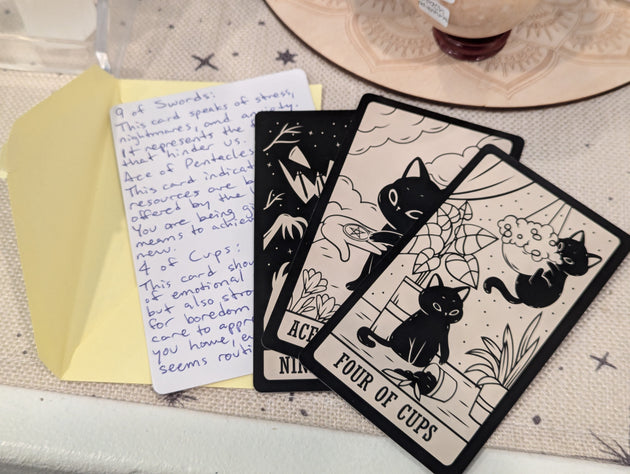 9 of Swords:
This card speaks of stress,
nightmares, and anxiety.
It represents the
that hinder us.
Ace of Pentacles
This card indicat
resources are b
offered by the
You are being gi
means to achie
new.
4 of Cups:
This card sho
of emotional
but also stro
for boredom
care to appr
you have, e
seems routi
NIN
ACE
FOUR OF CUPS